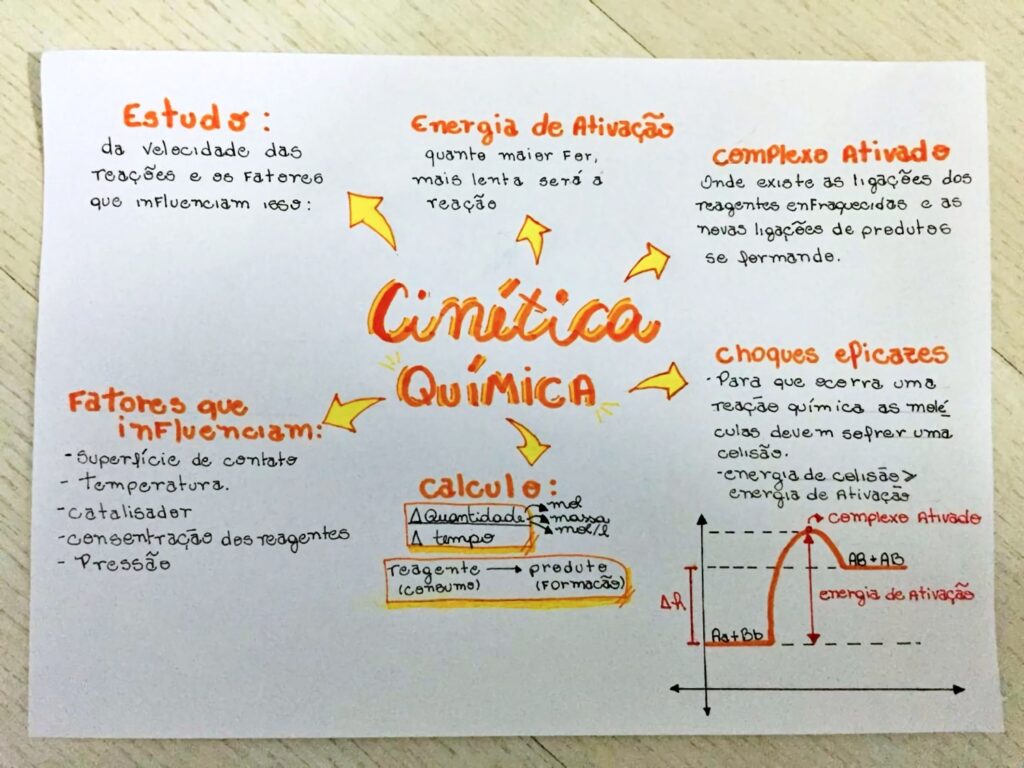 Estudo:
da velocidade das
reações e os fatores
que influenciam isso:
Energia de Ativação
quanto maior for,
mais lenta será a
reação
Complexo Ativado
Onde existe as ligações dos
reagentes enfraquecidas e as
novas ligações de produtos
se formando.
Cinética
Química
Choques eficazes
- Para que ocorra uma
reação química as molé
culas devem sofrer uma
colisão.
- energia de colisão >
energia de Ativação
Fatores que
influenciam:
- Superfície de contato
- Temperatura.
- catalisador
- consentração dos reagentes
- Pressão
Calculo:
Δ Quantidade
mol
massa
mol/l
Δ tempo
reagente → produto
(consumo) (Formação)
complexo Ativado
AB + AB
energia de Ativação
Δh
Aa + Bb